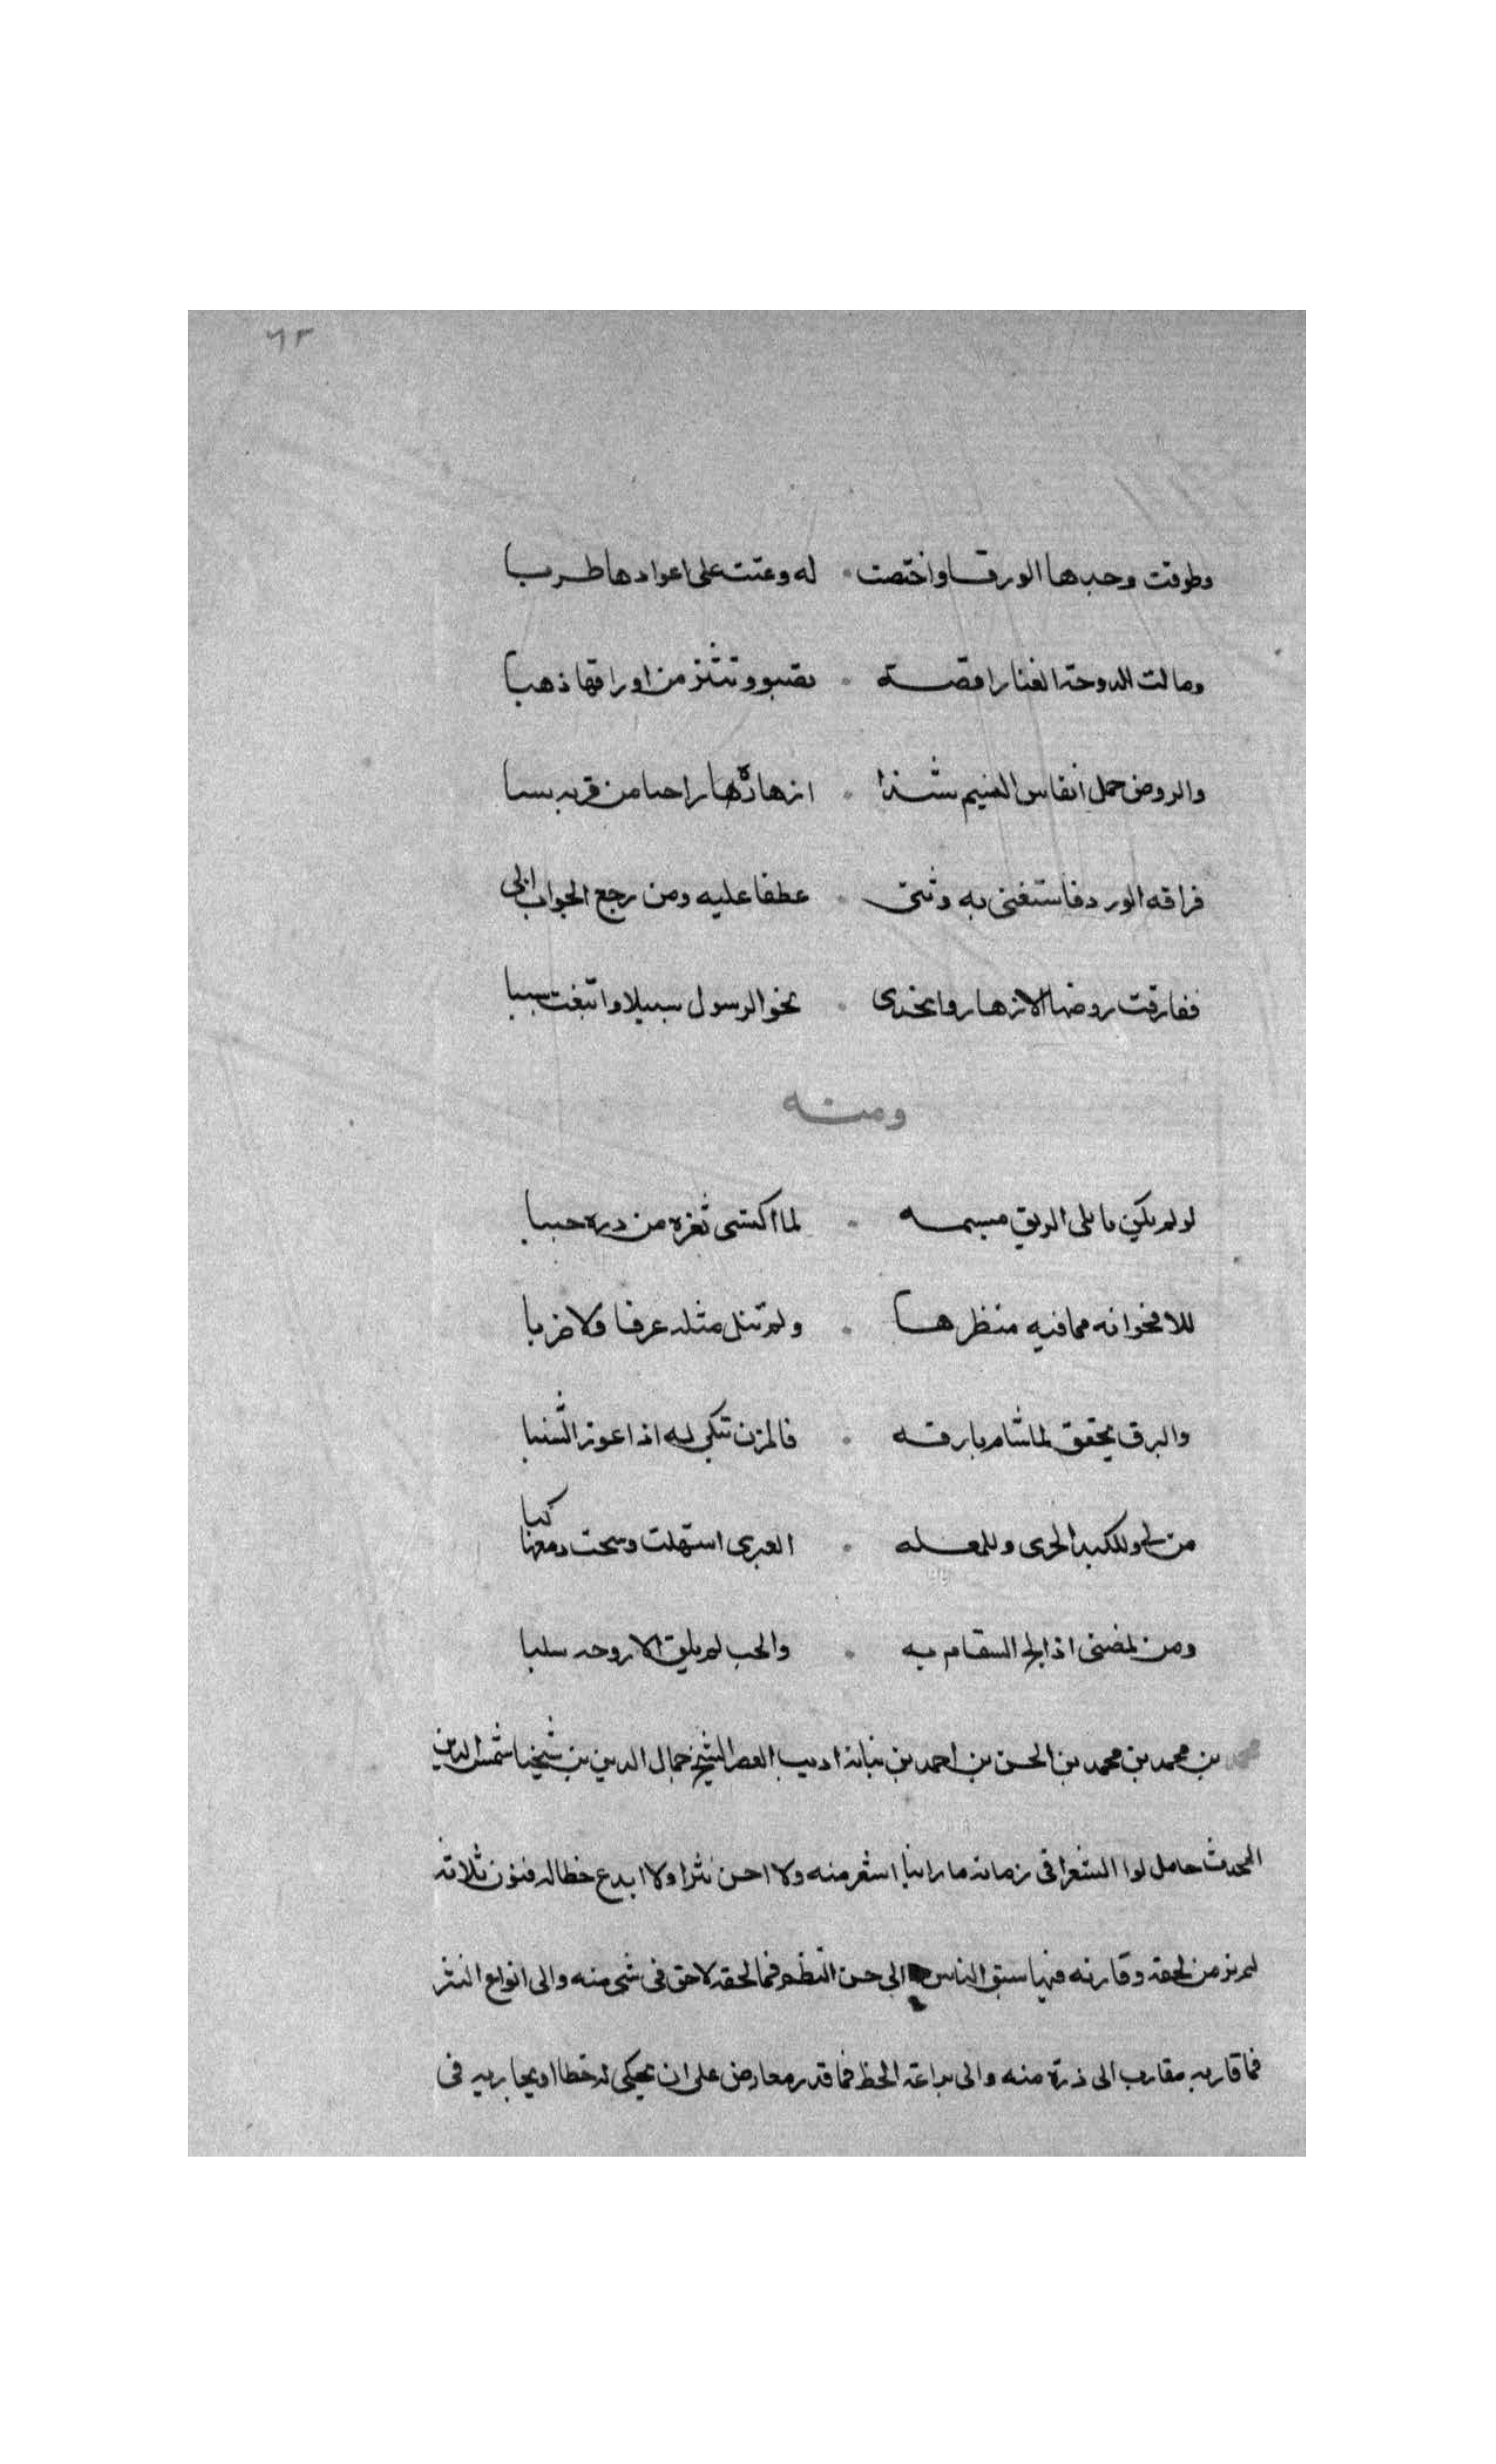 ٦٣
وطوقت وجيدها الورقا واختصت له وغنت على اعوادها طربا
ومالت الدوحة الغنا راقصة تصبو وتنثر من اوراقها ذهبا
والروض حمل انفاس النسيم شذا ازهاره راجيا من قربه سببا
فراقه الورد فاستغنى به وثنى عطفا عليه ومن رجع الجواب ابى
ففارقت روضها الازهار وانحدرت نحو الرسول سبيلا واتبعت سببا
ومنه
لو لم يكن بابلى الريق مبسمه لما اكتسى ثغره من دره حببا
للاقحوانه مما فيه منظرها ولم تنل مثله عرفا ولا ضربا
والبرق يخفق لما شام بارقه فالمزن تبكى له اذا عوز الشنبا
من لى وللكبد الحرى وللمقله العبرى استهلت وسحت دمعها
ومن لمضنى اذا لج السقام به والحب لم يبق الا روحه سلبا
محمد بن محمد بن محمد بن الحسن بن احمد بن نباتة اديب العصر الشيخ جمال الدين بن شيخنا شمس الدين
المحدث حامل لوا الشعرا فى زمانه ما راينا اشعر منه ولا احسن نثرا ولا ابدع خطا له فنون ثلاثة
لم نر من لحقه وقاربه فيها سبق الناس الى حسن النظم فما لحقه لاحق فى شى منه والى انواع النثر
فما قاربه مقارب الى ذرة منه والى براعة الخط فما قدر معارض على ان يحكى له خطا او يجاريه فى